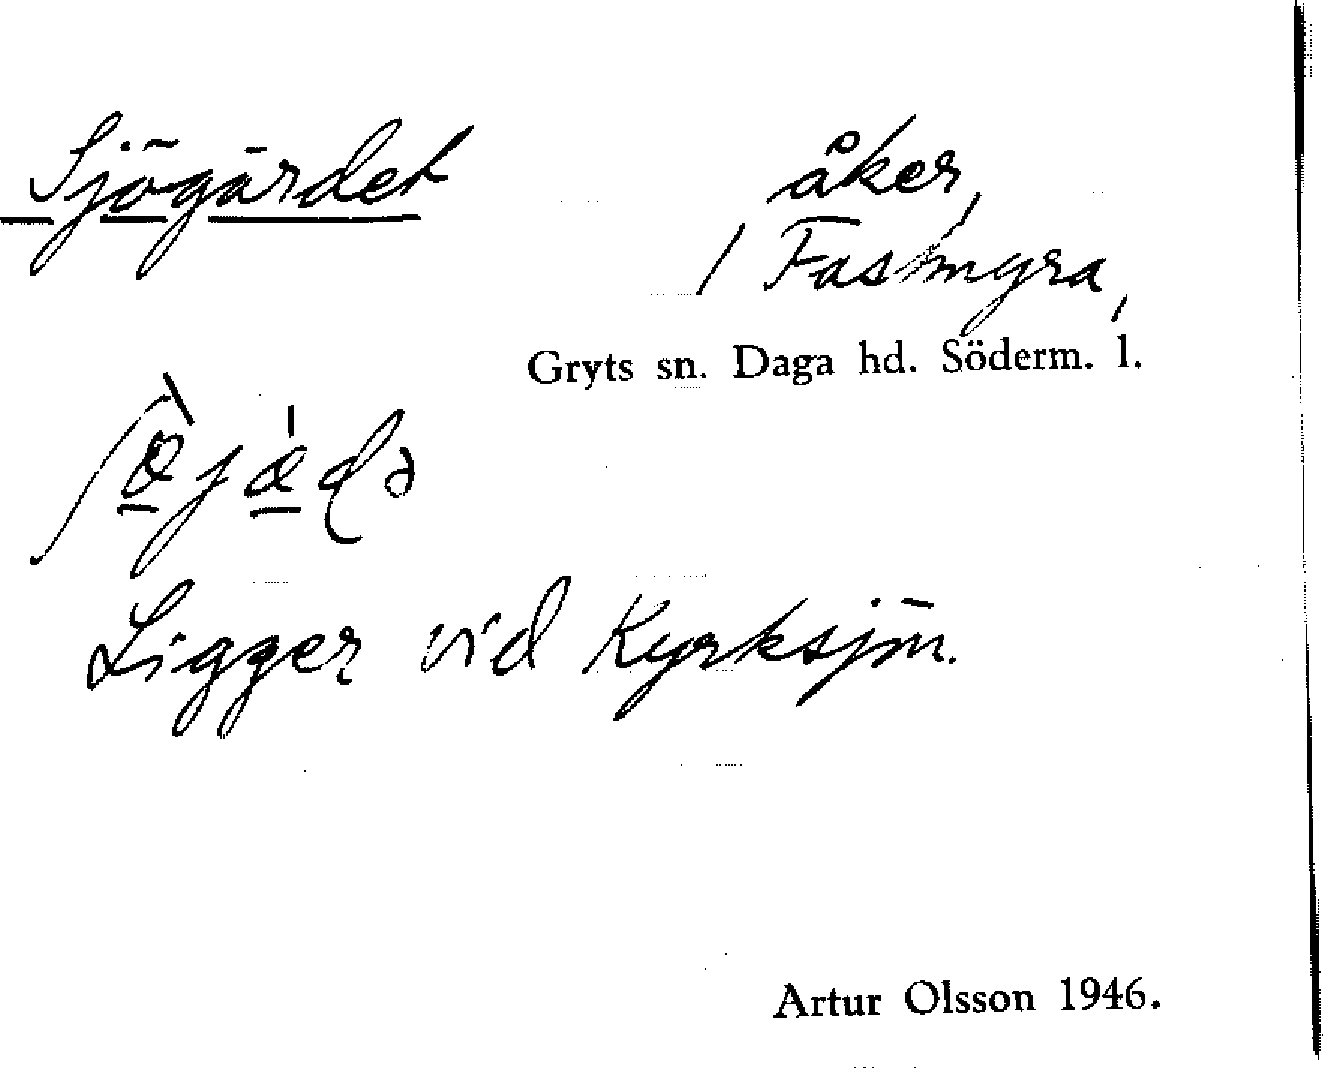 Sjögärdet åker,
/ Fasmyra,
Gryts sn. Daga hd. Söderm. l.
Ligger vid Kyrksjön.
Artur Olsson 1946.